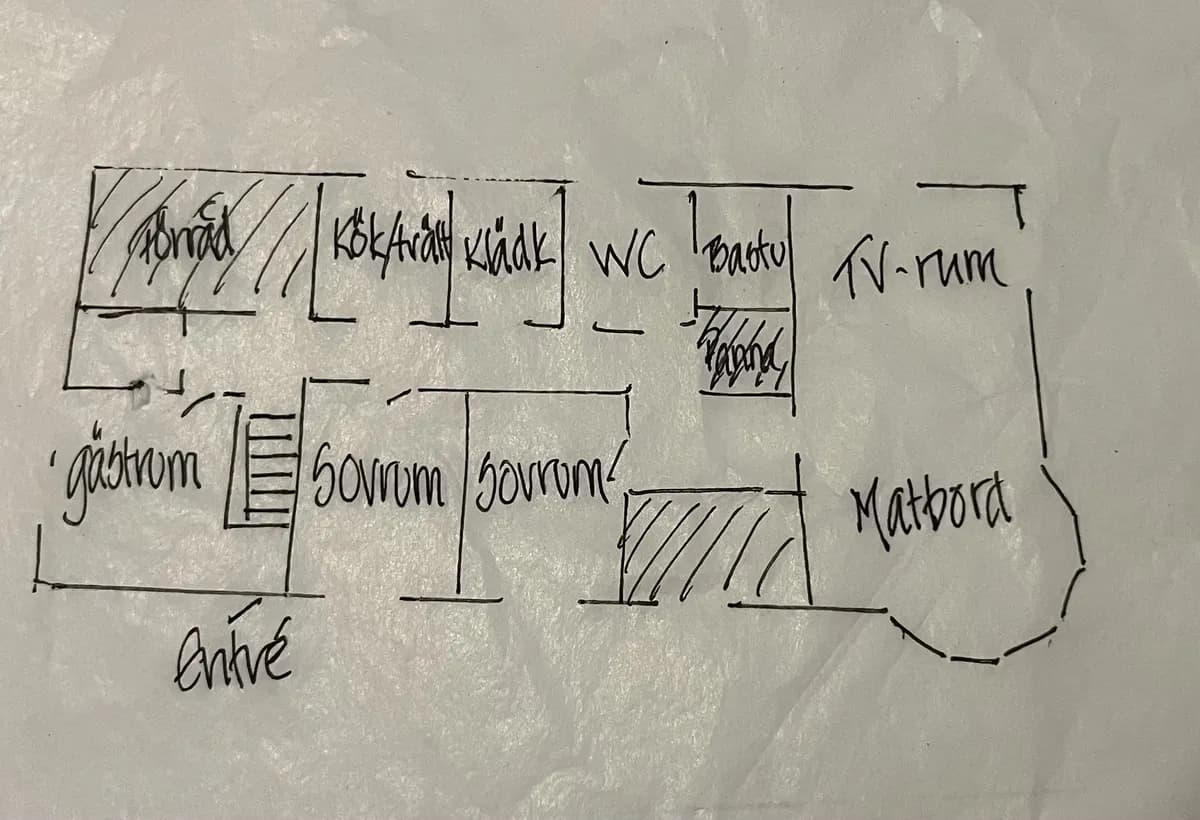 förråd
Kök/tvätt
Klädk
WC
Bastu
TV-rum
Panna
gästrum
Sovrum
Sovrum
Matbord
Entré